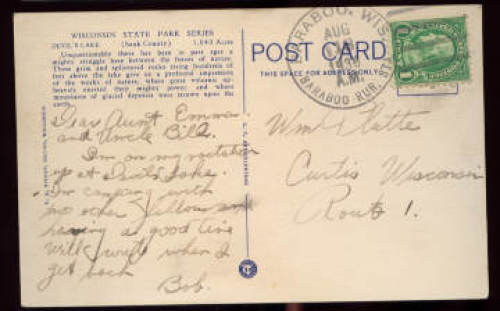 WISCONSIN STATE PARK SERIES
DEVIL'S LAKE (Sauk County) 1,040 Acres
Unquestionably there has been in past ages a
mighty struggle here between the forces of nature.
These grim and splintered rocks rising hundreds of
feet above the lake give us a profound impression
of the works of nature, where great volcanic up-
heavals exerted they mighty power and where
mountains of glacial deposits were strewn upon the
earth.
POST CARD
THIS SPACE FOR ADDRESS ONLY
BARABOO, WIS.
AUG
1935
A.M.
BARABOO-RUR. STR.
1 1
Dear Aunt Emma
and Uncle Bill.
I'm on my vacation
up at Devils Lake.
I'm camping with
two other fellows and
having a good time
Will write when I
get back
Bob.
Wm Platte
Curtis Wisconsin
Route 1.
CT